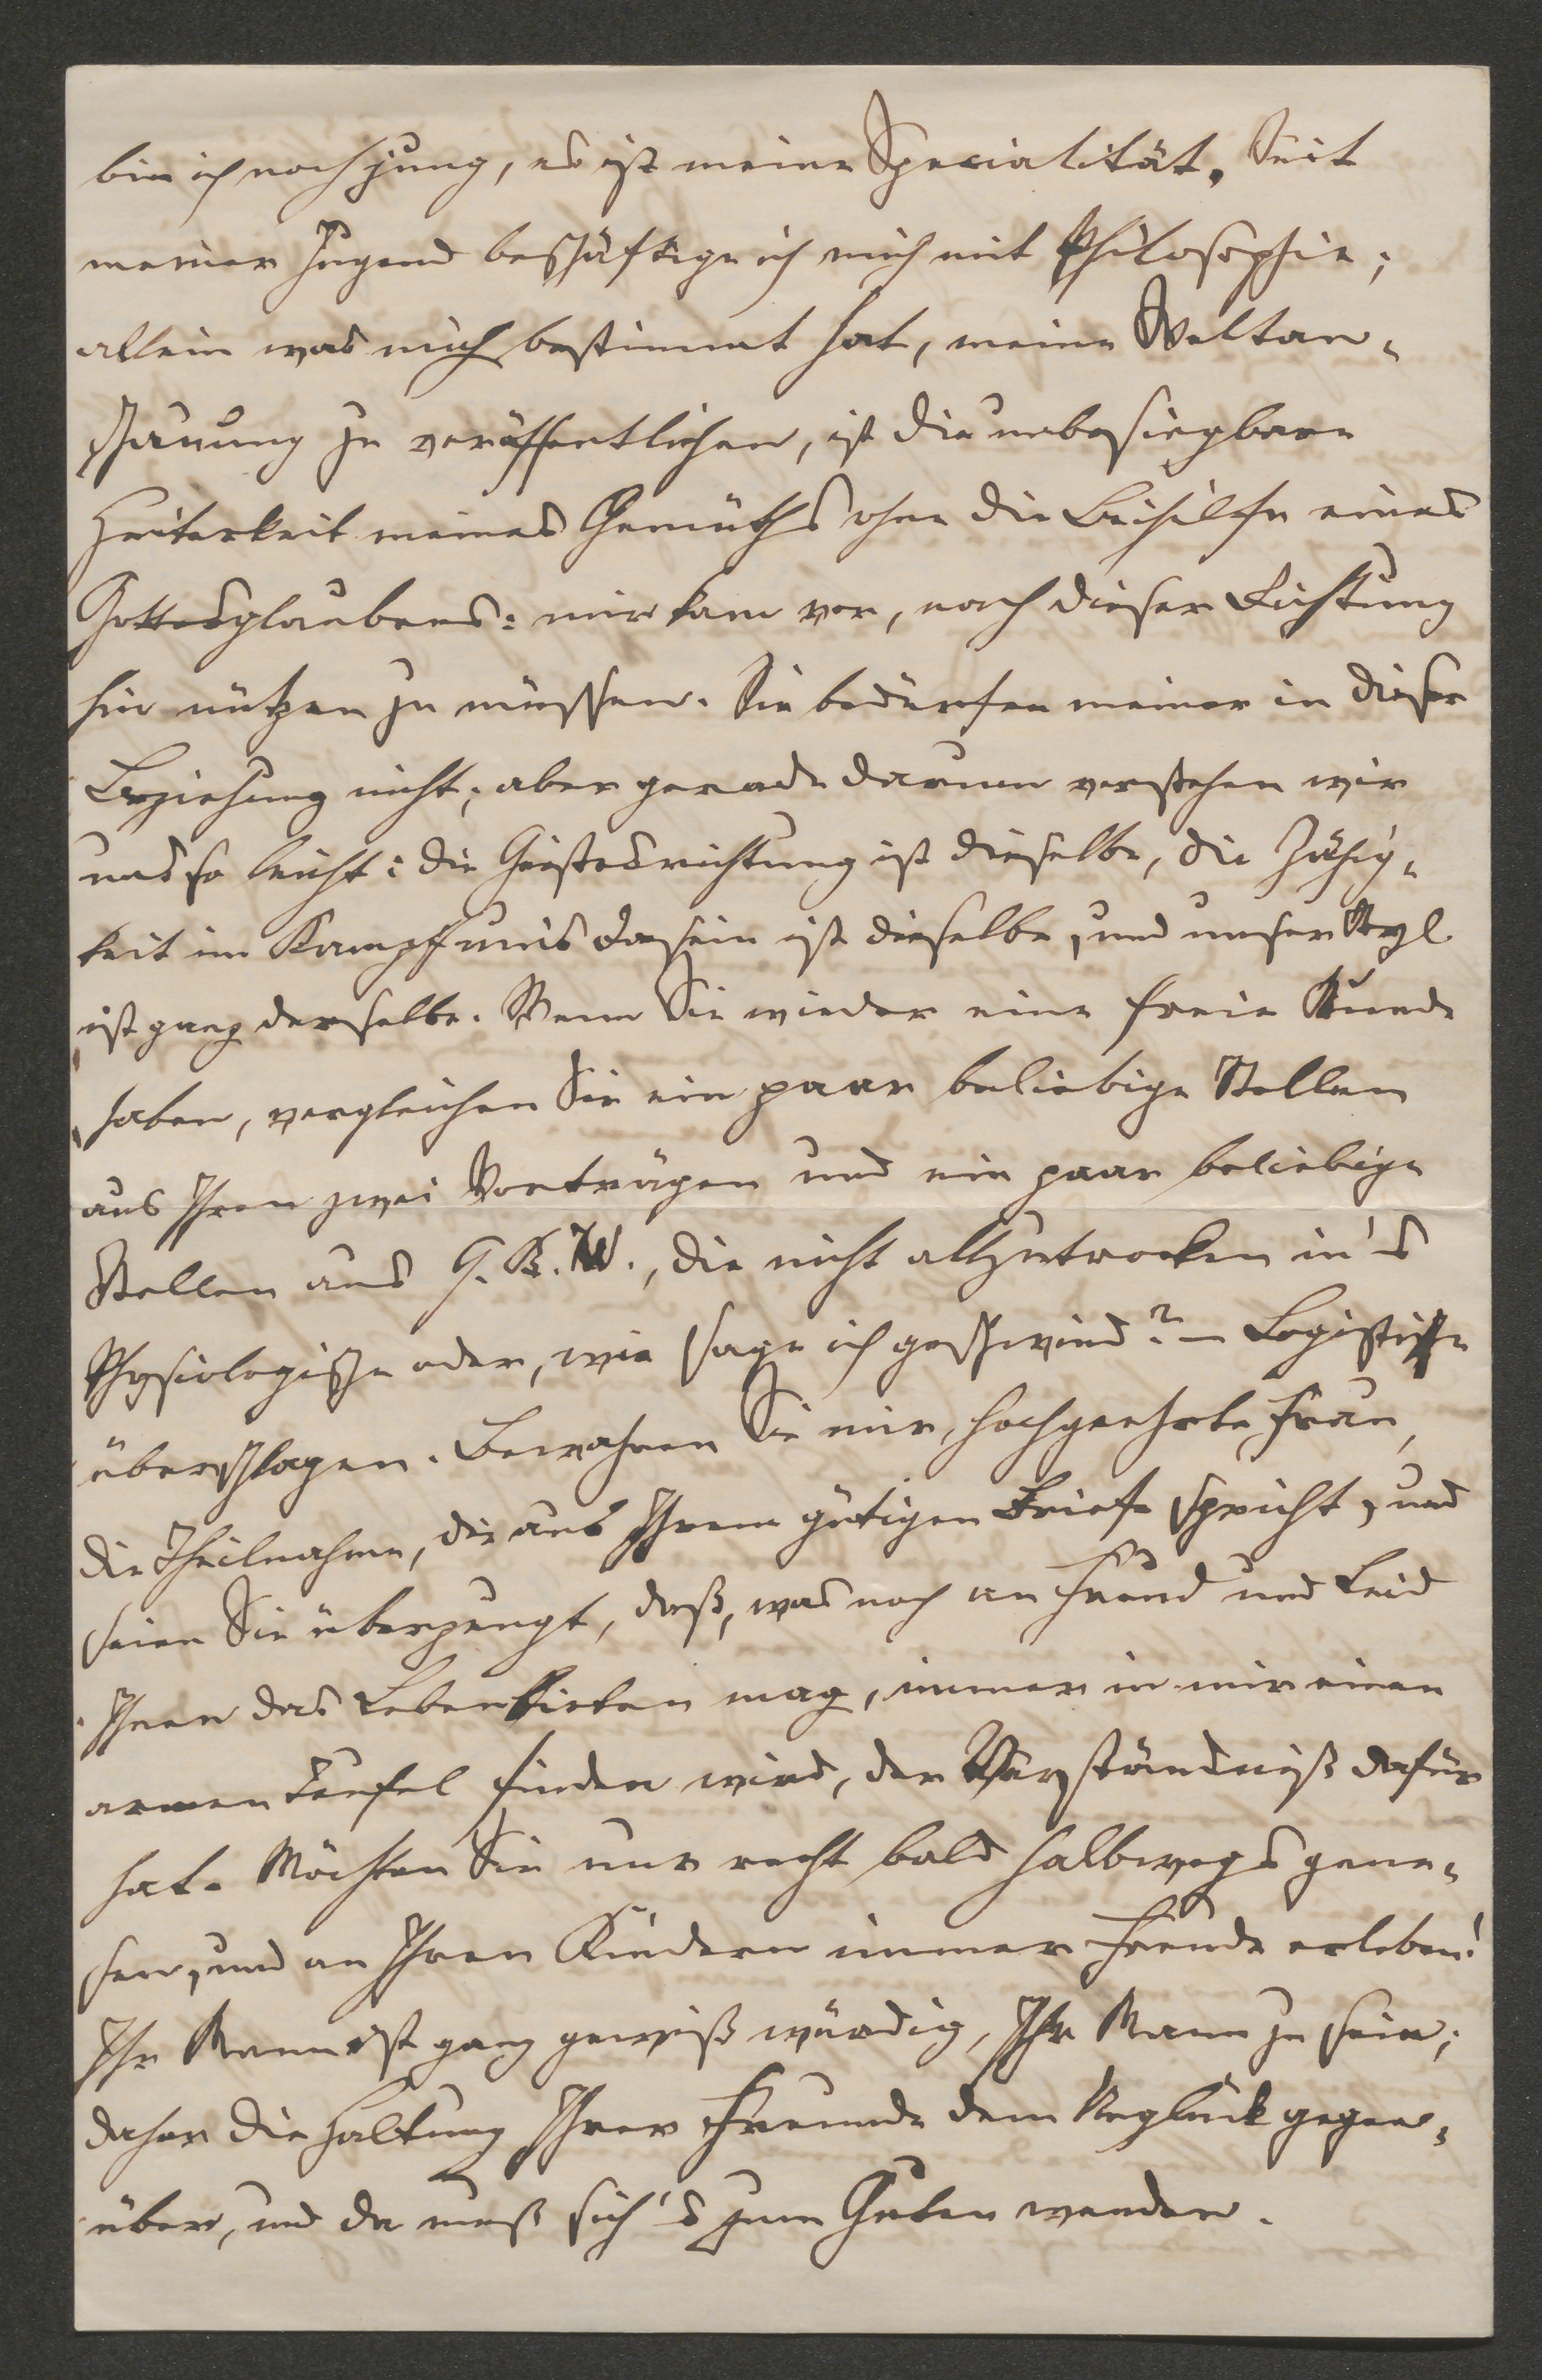 bin ich noch jung, es ist meine Specialität. Seit
meiner Jugend beschäftige ich mich mit Philosophie;
allein was mich bestimmt hat, meine Weltan-
schauung zu veröffentlichen, ist die unbesiegbare
Heiterkeit meines Gemüths ohne die Beihilfe eines
Gottesglaubens: mir kam vor, nach dieser Richtung
hin nützen zu müssen. Sie bedürfen meiner in dieser
Beziehung nicht; aber gerade darum verstehen wir
uns so leicht: die Geistesrichtung ist dieselbe, die Zähig-
keit im Kampf um's Dasein ist dieselbe, und unser Styl
ist ganz derselbe. Wenn Sie wieder eine freie Stunde
haben, vergleichen Sie ein paar beliebige Stellen
aus Ihren zwei Vorträgen und ein paar beliebige
Stellen aus G. B. W., die nicht allzutrocken in's
Physiologische oder, wie sage ich geschwind? – Logistische
überschlagen. Bewahren Sie mir, hochgeehrte Frau,
die Theilnahme, die aus Ihrem gütigen Briefe spricht, und
seien Sie überzeugt, daß, was noch an Freud und Leid
Ihnen das Leben bieten mag, immer in mir einen
armen Teufel finden wird, der Verständniß dafür
hat. Möchten Sie nur recht bald halbwegs gene-
sen, und an Ihren Kindern immer Freude erleben!
Ihr Mann ist ganz gewiß würdig, Ihr Mann zu sein;
daher die Haltung Ihrer Freunde dem Unglück gegen-
über, und da muß sich's zum Guten wenden.